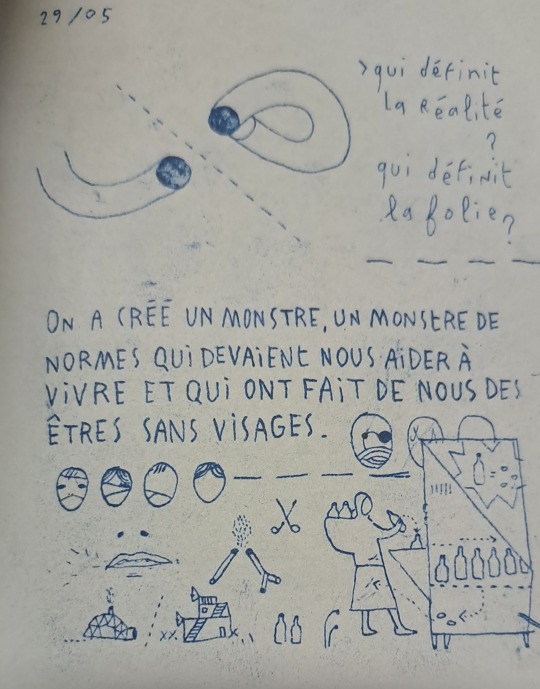 29/05
>qui définit
la Réalité
?
qui définit
la folie?
ON A CRÉÉ UN MONSTRE, UN MONSTRE DE
NORMES QUI DEVAIENT NOUS AIDER À
VIVRE ET QUI ONT FAIT DE NOUS DES
ÊTRES SANS VISAGES.